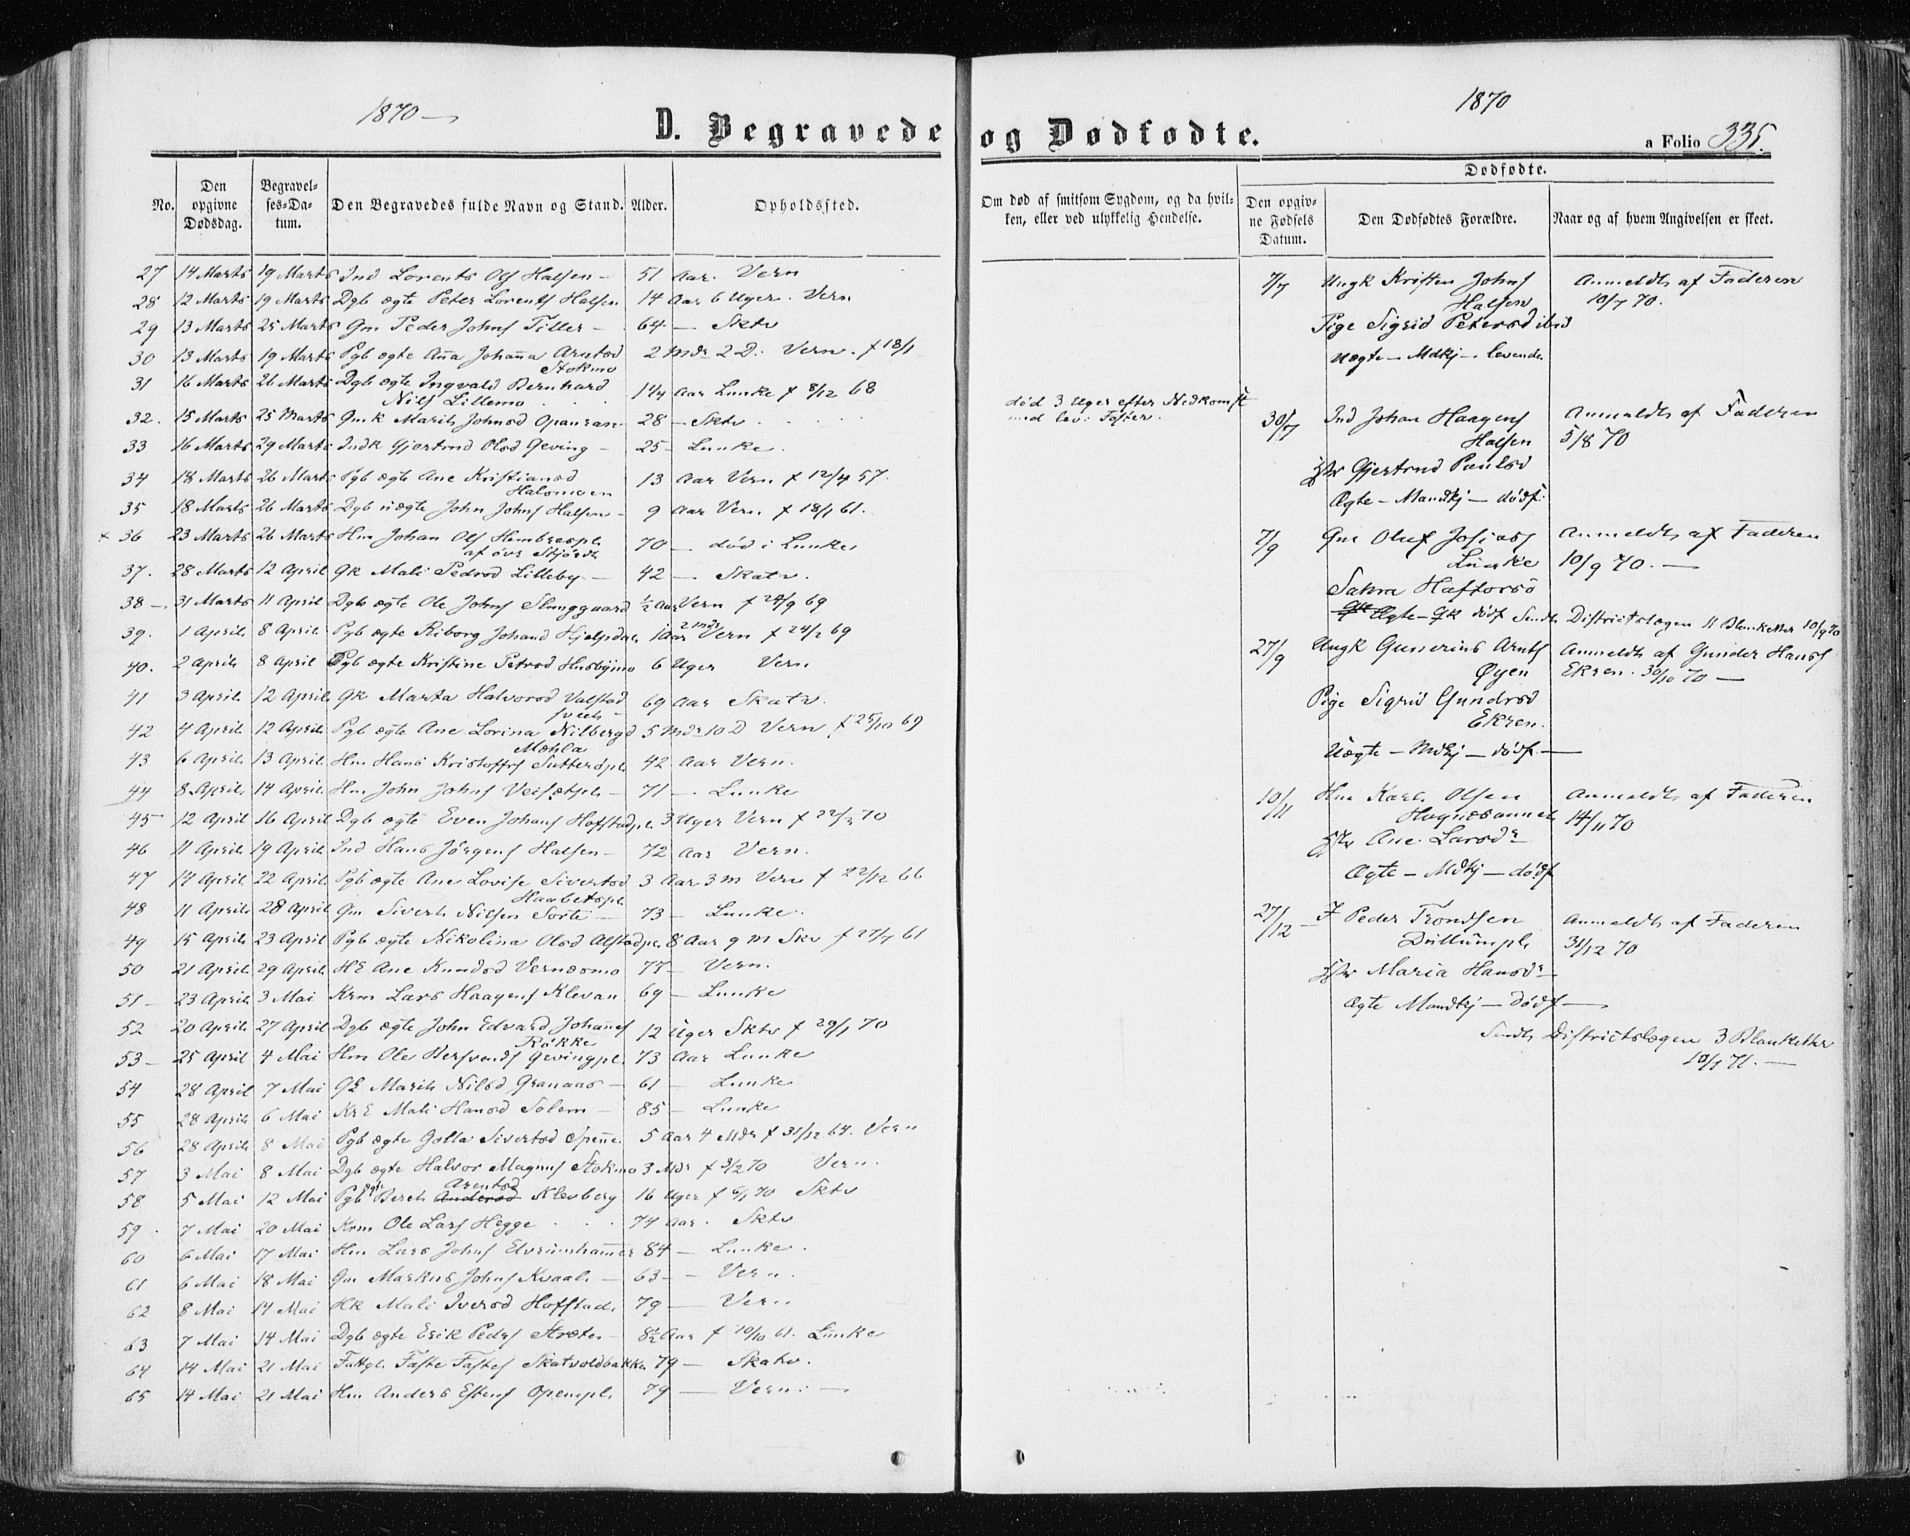 1870 —
D. Begravede
No.
Den opgivne Dødsdag.
Begravelses-Datum.
Den Begravedes fulde Navn og Stand.
Alder.
Opholdssted.
27 14 Marts 19 Marts Ind Lorents Ols Halsen — 51 Aar. Vern
28 12 Marts 19 Marts Dgb ægte Peter Lorents Halsen 14 Aar 6 Uger. Vern
29 13 Marts 25 Marts Gm Peder Johns Tiller — 64 — Sktv
30 13 Marts 19 Marts Pgb ægte Ana Johana Arntsd 2 Mdr 2 D. Vern. f 18/1
Stokmo
31 16 Marts 26 Marts Dgb ægte Ingvald Bernhard
Nils Lillemo 1 1/4 Aar Lunke f 8/12 68
32. 15 Marts 25 Marts Gmk Marit Johnsd Opauran 28 — Sktv
33 16 Marts 29 Marts Indk Gjertrud Olsd Geving — 25 — Lunke.
34 18 Marts 26 Marts Pgb ægte Ane Kristiansd 13 Aar Vern f 12/4 57.
Halomoen
35 18 Marts 26 Marts Dgb uægte John Johns Halsen — 9 Aar Vern f 18/1 61.
× 36 23 Marts 26 Marts Hm Johan Ols Hembrespl 70 — død i Lunke
af øvr Stjørdl
37. 28 Marts 12 April Gk Mali Pedrsd Lilleby — 42 — Skatv.
38 — 31 Marts 11 April Dgb ægte Ole Johns Slunggaard 1/2 Aar Vern f 24/9 69
39. 1 April 8 April Pgb ægte Riborg Johansd Hjelpdal 1 Aar 2 Mdr Vern f 24/2 69
40. 2 April 8 April Pgb ægte Kristine Petrsd Husbymo 6 Uger Vern
41 3 April 12 April Gk Marta Halvorsd Valstad 69 Aar Skatv.
42 4 April 12 April Pgb ægte Ane Lorina Nilbergd 5 Mdr 10 D Vern f 25/10 69
Mæhla
43 6 April 13 April Hm Hans Kristoffs Sutterøpl 42 Aar Vern.
44 8 April 14 April Hm John Johns Veisetpl — 71 — Lunke
45 12 April 16 April Dgb ægte Even Johans Hofstadpl 3 Uger Vern f 22/3 70
46 11 April 19 April Ind Hans Jørgens Halsen — 72 Aar Vern.
47 14 April 22 April Pgb ægte Ane Lovise Sivertsd 3 Aar 3 M Vern f 22/12 66
Haabetspl
48 11 April 28 April Gm Sivert Nilsen Sorte — 73 — Lunke.
49 15 April 23 April Pgb ægte Nikolina Olsd Alstadpl 8 Aar 9 M Skv f 27/7 61
50 21 April 29 April HE Ane Knudsd Vernæsmo 77 — Vern.
51 — 23 April 3 Mai Krm Lars Haagens Klevan 69 — Lunke
52 20 April 27 April Dgb ægte John Edvard Johanes 12 Uger Sktv f 29/1 70
Røkke
53 — 25 April 4 Mai Hm Ole Bersvends Gevingpl. 73 Aar Lunke
54 28 April 7 Mai GE Marit Nilsd Granaas — 61 — Lunke
55 28 April 6 Mai KrE Mali Hansd Solem — 85 — Lunke
56 28 April 8 Mai Pgb ægte Golla Sivertsd Spenne. 5 Aar 4 Mdr f 31/12 64. Vern
57 3 Mai 8 Mai Dgb ægte Halvor Magnus Stokmo 3 Mdr f 3/2 70 Vern.
Arentsd
58 5 Mai 12 Mai Pgb ægte Beret Andersd Klevberg 16 Uger f 6/1 70 Sktv
59. 7 Mai 20 Mai Krm Ole Lars Hegge 74 Aar. Sktv
60 6 Mai 17 Mai Hm Lars Johns Elvrumhamer 84 — Lunke.
61 6 Mai 18 Mai Gm Markus Johns Kvaal — 63 — Vern.
62 8 Mai 14 Mai Hk Mali Iversd Hofstad. 79 — Vern
63 7 Mai 14 Mai Dgb ægte Erik Peders Stræte — 8 1/2 Aar f 10/10 61. Lunke
64 14 Mai 21 Mai Fattgl. Faste Fastes Skatvoldbakke 79 — Skatv.
65 14 Mai 21 Mai Hm Anders Estens Opempl. 79 — Vern. —
1870
og Dødfødte.
a Folio 335.
Om død af smitsom Sygdom, og da hvilken, eller ved ulykkelig Hendelse.
Dødfødte.
Den opgivne Fødsels Datum.
Den Dødfødtes Forældre.
Naar og af hvem Angivelsen er skeet.
død 3 Uger efter Nedkomst
med lev. Foster.
7/7 Ungk Kristen Johns Anmeldt af Faderen
Halsen 10/7 70.
Pige Sigrid Petersd ibid
Uægte — Mdkj — levende
30/7 Ind Johan Haagens Anmeldt af Faderen
Halsen 5/8 70
Hstr Gjertrud Paulsd
Ægte — Mandkj — dødf.
7/9 Gm Oluf Josias Anmeldt af Faderen
Lunke 10/9 70. —
Sahra Haftorsd
Ægte — Qk dødf Sendt Districtslægen 11 Blanketter 10/9 70
27/9 Ungk Gunerius Arnts Anmeldt af Gunder Hans
Øyen Ekren. 30/10 70 —
Pige Sigrid Gundrsd
Ekren.
Uægte — Mdkj — dødf —
10/11 Hm Karl Olsen Anmeldt af Faderen
14/11 70
Hstr Ane Larsdr
Ægte — Mdkj — dødf
27/12 — I Peder Trondsen Anmeldt af Faderen
Drillumpl. 31/12 70
Hstr Maria Hansdr
Ægte Mandkj — Dødf —
Sendt Districtslægen 3 Blanketter
10/1 71. —